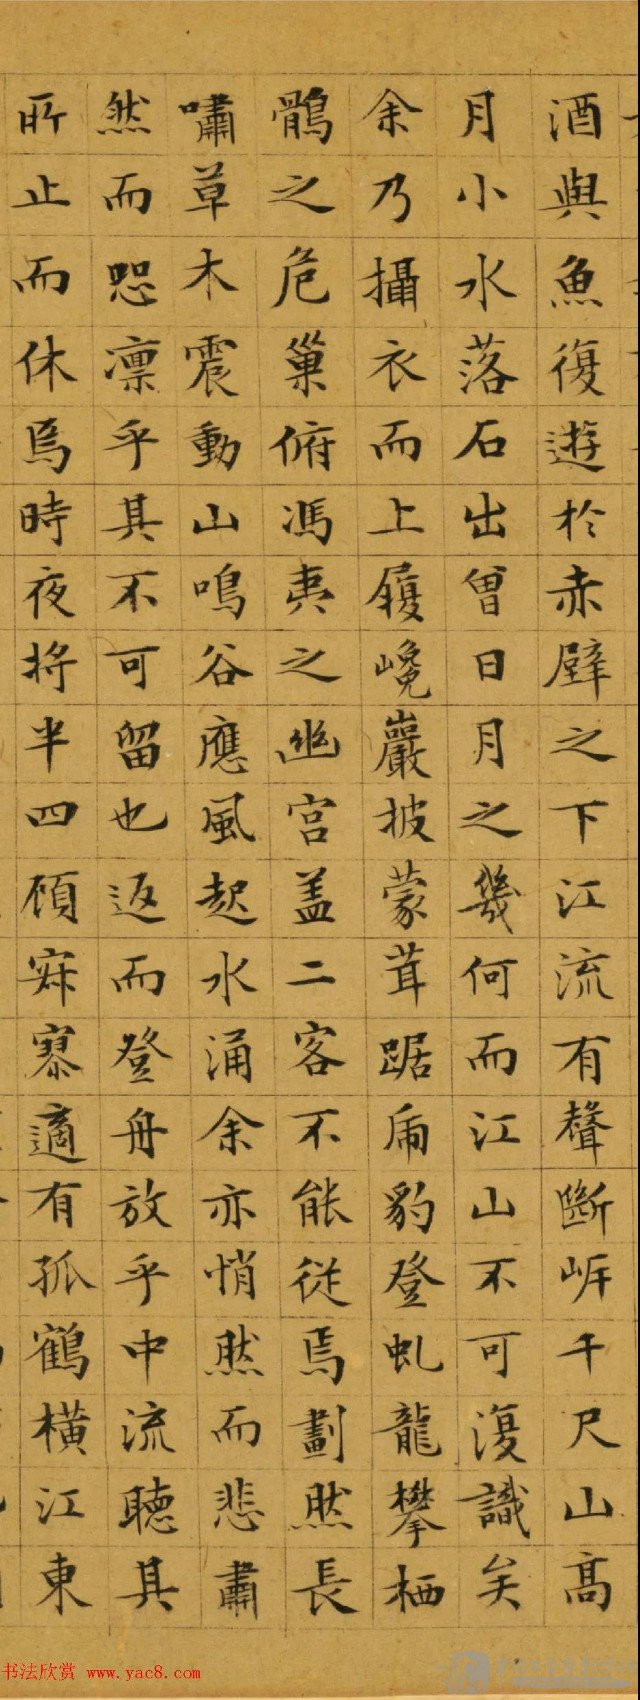 酒與魚復遊於赤壁之下江流有聲斷岸千尺山高
月小水落石出曾日月之幾何而江山不可復識矣
余乃攝衣而上履巉巖披蒙茸踞虎豹登虬龍攀栖
鶻之危巢俯馮夷之幽宮盖二客不能從焉劃然長
嘯草木震動山鳴谷應風起水涌余亦悄然而悲肅
然而恐凛乎其不可留也返而登舟放乎中流聽其
所止而休焉時夜將半四顧寂寥適有孤鶴橫江東
书法欣赏 www.yac8.com